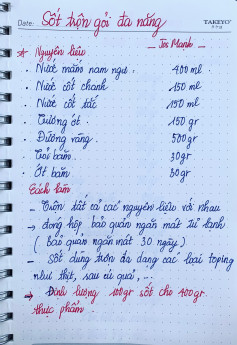 Sốt trộn gỏi đa năng
Date:
TAKEYO
- Tôi Mạnh -
Nguyên liệu
. Nước mắm nam ngư : 400 ml
. Nước cốt chanh 150 ml
. Nước cốt tắc 150 ml
. Tương ớt 150 gr
. Đường vàng 500gr
. Tỏi băm 30gr
. Ớt băm 30gr
Cách làm
- Trộn tất cả các nguyên liệu với nhau
→ đong hộp bảo quản ngăn mát tủ lạnh
( bảo quản ngăn mát 30 ngày )
- Sốt dùng trộn đa dạng các loại toping
như thịt, rau củ quả, ...
→ Định lượng 100gr sốt cho 400gr
thực phẩm